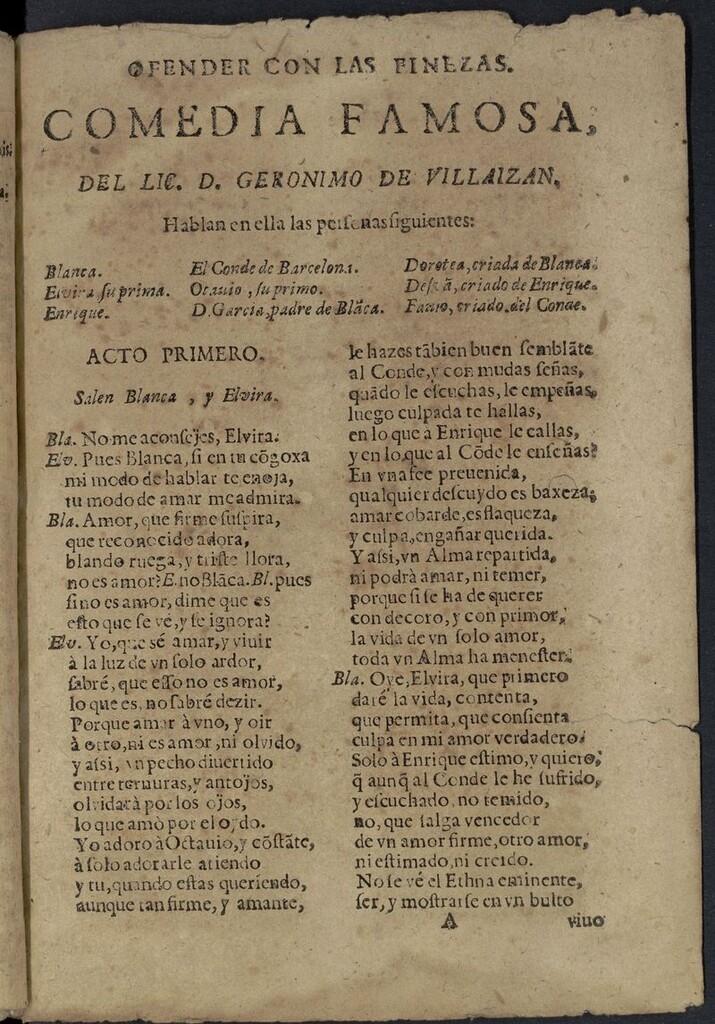 OFENDER CON LAS FINEZAS.
COMEDIA FAMOSA,
DEL LIC. D. GERONIMO DE VILLAIZAN.
Hablan en ella las personas siguientes:
Blanca.
Elvira, su prima.
Enrique.
El Conde de Barcelona.
Octauio, su primo.
D. Garcia, padre de Blãca.
Dorotea, criada de Blanca.
criado de Enrique.
criado del Conde.
ACTO PRIMERO.
Salen Blanca, y Elvira.
Bla. No me aconſejes, Elvira.
Ev. Pues Blanca, ſi en tu cõgoxa
mi modo de hablar te enoja,
tu modo de amar me admira.
Bla. Amor, que firme ſuſpira,
que reconocido adora,
blando ruega, y triſte llora,
no es amor? E. no Blãca. Bl. pues
ſi no es amor, dime que es
eſto que ſe vé, y ſe ignora?
Elv. Yo, que sé amar, y viuir
à la luz de vn ſolo ardor,
ſabré, que eſſo no es amor,
lo que es, no ſabré dezir.
Porque amar à vno, y oir
à otro, ni es amor, ni olvido,
y aſsi, vn pecho diuertido
entre ternuras, y antojos,
olvidarà por los ojos,
lo que amò por el oydo.
Yo adoro à Octauio, y cõſtãte,
à ſolo adorarle atiendo
y tu, quando eſtas queriendo,
aunque tan firme, y amante,
le hazes tãbien buen ſemblãte
al Conde, y con mudas ſeñas,
quãdo le eſcuchas, le empeñas,
luego culpada te hallas,
en lo que à Enrique le callas,
y en lo que al Cõde le enſeñas?
En vna fee preuenida,
qualquier deſcuydo es baxeza,
amar cobarde, es flaqueza,
y culpa, engañar querida.
Y aſsi, vn Alma repartida,
ni podrà amar, ni temer,
porque ſi ſe ha de querer
con decoro, y con primor,
la vida de vn ſolo amor,
toda vn Alma ha meneſter.
Bla. Oye, Elvira, que primero
daré la vida, contenta,
que permita, que conſienta
culpa en mi amor verdadero.
Solo à Enrique eſtimo, y quiero,
q̃ aunq̃ al Conde le he ſufrido,
y eſcuchado, no temido,
no, que ſalga vencedor
de vn amor firme, otro amor,
ni eſtimado, ni creido.
No ſe vé el Ethna eminente,
ſer, y moſtrarſe en vn bulto
A
viuo